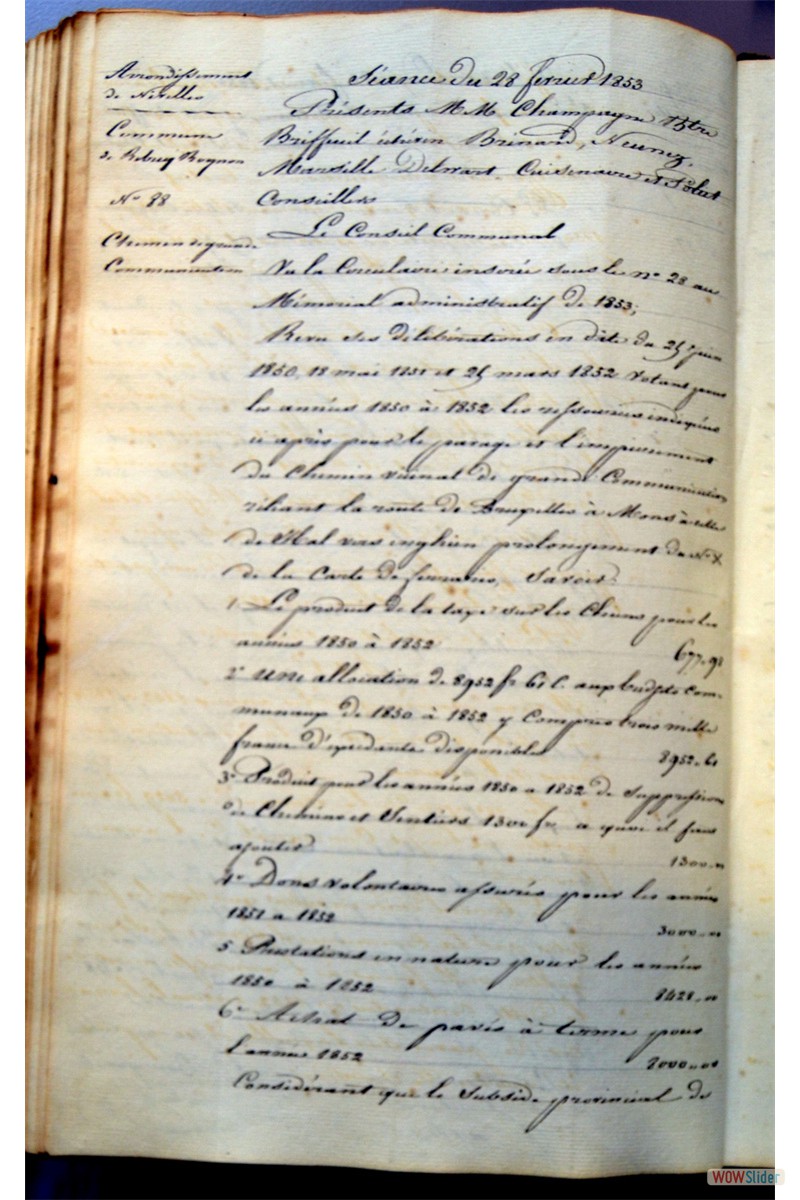 Arrondissement
de Nivelles
Commune
de Rebecq Rognon
N° 88
Chemin de grande
Communication
Séance du 28 février 1853
Présents MM Champagne
Brisseuil échevin Brinard,
Marseille Delwart Cuisenaire et
Conseillers
Le Conseil Communal
Vu la Circulaire insérée sous le n° 28 au
Mémorial administratif de 1853;
Revu ses délibérations en date du 25 juin
1850, 18 mai 1851 et 25 mars 1852 votant pour
les années 1850 à 1852 les ressources indiquées
ci après pour le pavage et l'empierrement
du Chemin vicinal de grande Communication
reliant la route de Bruxelles à Mons à celle
de Hal vers enghien prolongement du N°
de la Carte de ferraris, Savoir:
1° Le produit de la taxe sur les Chiens pour les
années 1850 à 1852 677,91
2° Une allocation de 8952 fr 61 c. aux budjets com-
munaux de 1850 à 1852 y Compris trois mille
francs d'excédents disponibles 8952,61
3° Produit pour les années 1850 a 1852 de Suppressions
de Chemins et Sentiers 1300 fr a quoi il faut
ajouter 1300,"
4° Dons volontaires assurés pour les années
1851 a 1852 3000,"
5° Prestations en nature pour les années
1850 à 1852 8428,"
6° Achat de pavés à terme pour
l'année 1852 2000,00
Considérant que le Subside provincial de
WOWSlider